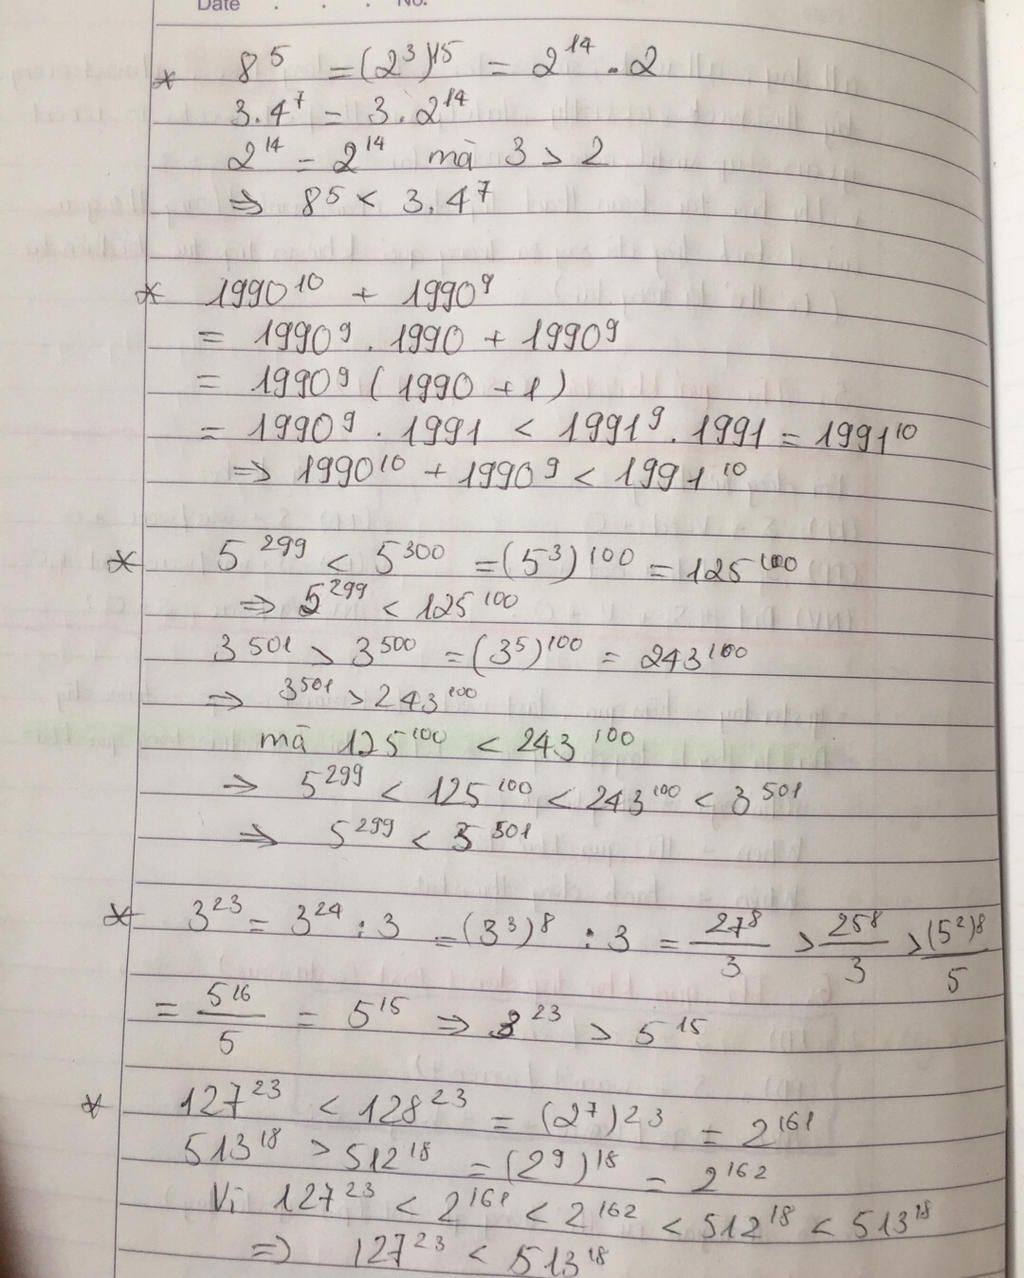 Date . . . No.
* 8⁵ = (2³)¹⁵ = 2¹⁴ . 2
3.4⁷ = 3 . 2¹⁴
2¹⁴ = 2¹⁴ mà 3 > 2
⇒ 8⁵ < 3.4⁷
* 1990¹⁰ + 1990⁹
= 1990⁹ . 1990 + 1990⁹
= 1990⁹ ( 1990 + 1 )
= 1990⁹ . 1991 < 1991⁹ . 1991 = 1991¹⁰
⇒ 1990¹⁰ + 1990⁹ < 1991¹⁰
* 5²⁹⁹ < 5³⁰⁰ = (5³)¹⁰⁰ = 125¹⁰⁰
⇒ 5²⁹⁹ < 125¹⁰⁰
3⁵⁰¹ > 3⁵⁰⁰ = (3⁵)¹⁰⁰ = 243¹⁰⁰
⇒ 3⁵⁰¹ > 243¹⁰⁰
mà 125¹⁰⁰ < 243¹⁰⁰
⇒ 5²⁹⁹ < 125¹⁰⁰ < 243¹⁰⁰ < 3⁵⁰¹
⇒ 5²⁹⁹ < 3⁵⁰¹
* 3²³ = 3²⁴ : 3 = (3³)⁸ : 3 = 27⁸/3 > 25⁸/3 > (5²)⁸/5
= 5¹⁶/5 = 5¹⁵ ⇒ 3²³ > 5¹⁵
* 127²³ < 128²³ = (2⁷)²³ = 2¹⁶¹
513¹⁸ > 512¹⁸ = (2⁹)¹⁸ = 2¹⁶²
Vì 127²³ < 2¹⁶¹ < 2¹⁶² < 512¹⁸ < 513¹⁸
⇒ 127²³ < 513¹⁸